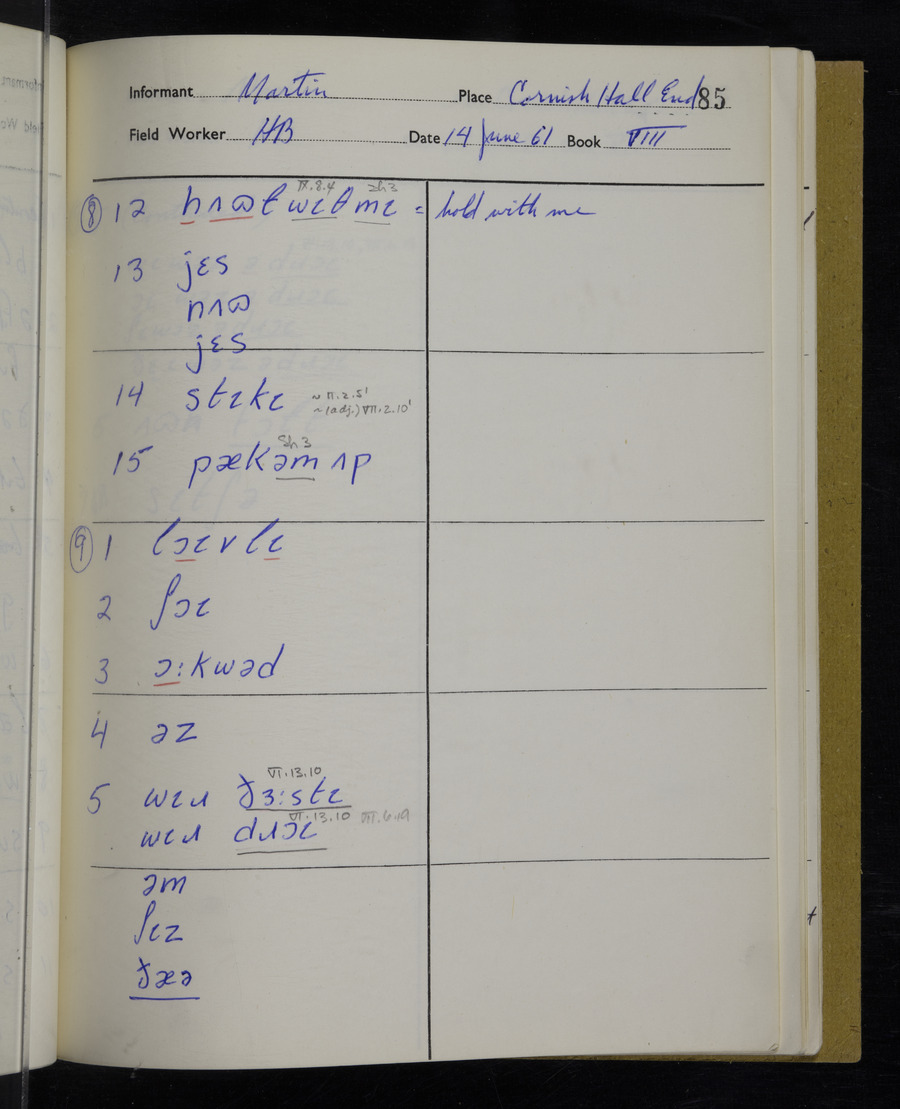 Informant Martin Place Cornish Hall End 85
Field Worker HB Date 14 June 61 Book VIII
IX.8.4 Sh3
⑧ 12 hʌɷt wɪθ mɪ = hold with me
13 jɛs
nʌɷ
jɛs
14 stɪkɪ ~ VI.2.5'
~(adj.) VII.2.10'
Sh 3
15 pækəm ʌp
⑨ 1 lɔɪvlɪ
2 ʃɔɪ
3 ɔ:kwəd
4 əz
VI.13.10
5 wɪɹ ðɜ:stɪ
VI.13.10 VII.6.19
wɪɹ dɹɔɪ
əm
ʃɪz
ðæə